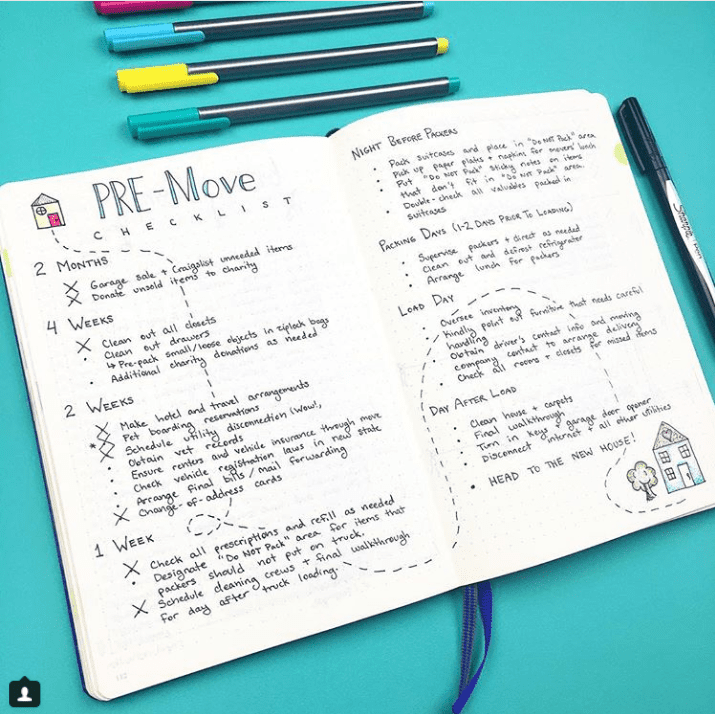 PRE-Move
CHECKLIST
2 MONTHS
X Garage sale + Craigslist unneeded items
X Donate unsold items to charity
4 WEEKS
X Clean out all closets
• Clean out drawers
↳ Pre-pack small/loose objects in ziplock bags
• Additional charity donations as needed
2 WEEKS
X Make hotel and travel arrangements
X Pet boarding reservations
*X Schedule utility disconnection (wow!,
• Obtain vet records
• Ensure renters and vehicle insurance through move
• Check vehicle registration laws in new state
• Arrange final bills/mail forwarding
X Change-of-address cards
1 WEEK
X Check all prescriptions and refill as needed
• Designate "Do NOT Pack" area for items that
packers should not put on truck.
X Schedule cleaning crews + final walkthrough
for day after truck loading.
NIGHT BEFORE PACKERS
• Pack suitcases and place in "Do NOT Pack" area
• Pick up paper plates + napkins for movers' lunch
• Put "Do NOT Pack" sticky notes on items
that don't fit in "Do NOT Pack" area.
• Double-check all valuables packed in
suitcases
PACKING DAYS (1-2 DAYS PRIOR TO LOADING)
• Supervise packers + direct as needed
• Clean out and defrost refrigerator
• Arrange lunch for packers
LOAD DAY
• Oversee inventory
• Kindly point out furnitive that needs careful
handling
• Obtain driver's contact info and moving
company contact to arrange delivery
• Check all rooms + closets for missed items
DAY AFTER LOAD
• Clean house + carpets
• Final walkthrough
• Turn in keys + garage door opener
• Disconnect internet + all other utilities
• HEAD TO THE NEW HOUSE!
Sharpie